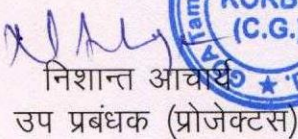 KORB
(C.G.)
निशान्त आचार्य
उप प्रबंधक (प्रोजेक्टस)